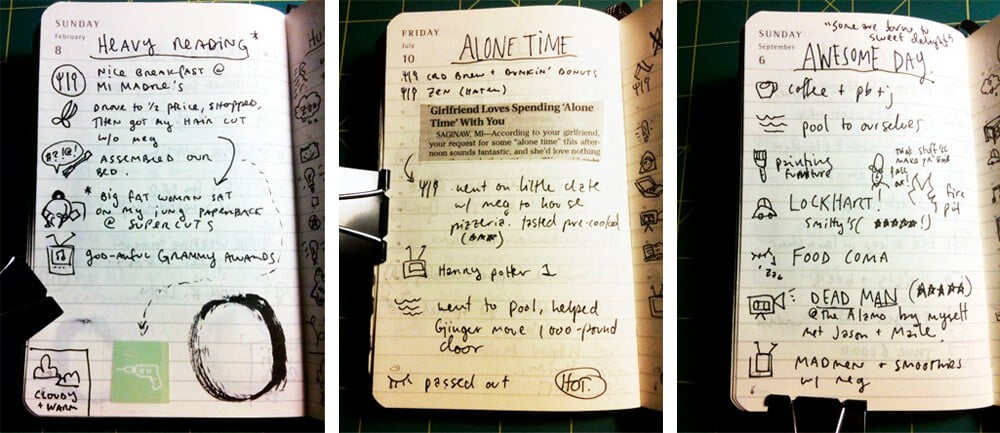 SUNDAY
February
8
HEAVY READING*
NICE BREAKFAST @
MI MADRE'S
DROVE TO ½ PRICE, SHOPPED,
THEN GOT MY HAIR CUT
W/O MEG
#?!@!
ASSEMBLED OUR
BED.
* BIG FAT WOMAN SAT
ON MY JUNG PAPERBACK
@ SUPERCUTS
GOD-AWFUL GRAMMY AWARDS
CLOUDY
+ WARM
FRIDAY
July
10
ALONE TIME
COLD BREW + DUNKIN' DONUTS
ZEN (HATCH)
Girlfriend Loves Spending 'Alone
Time' With You
SAGINAW, MI—According to your girlfriend,
your request for some "alone time" this after-
noon sounds fantastic, and she'd love nothing
went on little date
w/ meg to house
pizzeria. tasted pre-cooked
(★★★)
Harry potter 1
went to pool, helped
Ginger move 1,000-pound
door
passed out
HOT.
SUNDAY
September
6
"some are born to
sweet delight"
AWESOME DAY.
coffee + pb + j
pool to ourselves
painting
furniture
fire
pit
LOCKHART!
Smitty's (★★★★★!)
FOOD COMA
zzz
DEAD MAN (★★★★★)
@ The Alamo by myself
met Jason + Maile
MADMEN + SMOOTHIES
w/ meg